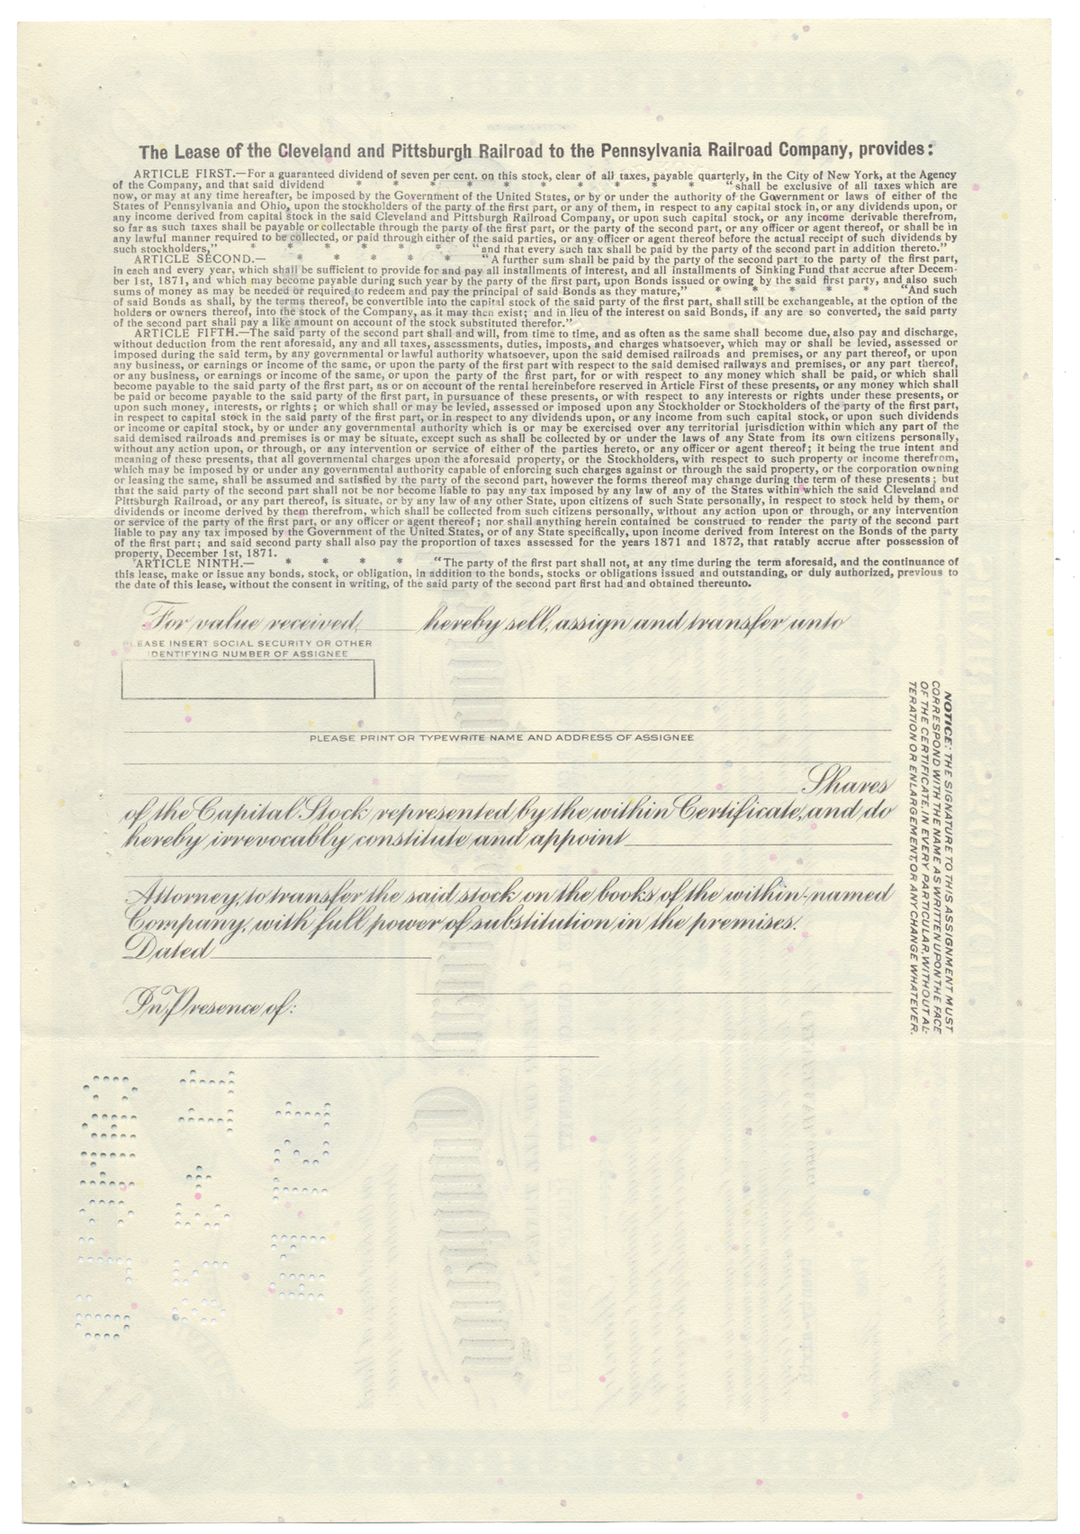 The Lease of the Cleveland and Pittsburgh Railroad to the Pennsylvania Railroad Company, provides:
ARTICLE FIRST.—For a guaranteed dividend of seven per cent. on this stock, clear of all taxes, payable quarterly, in the City of New York, at the Agency
of the Company, and that said dividend * * * * * * * * * * "shall be exclusive of all taxes which are
now, or may at any time hereafter, be imposed by the Government of the United States, or by or under the authority of the Government or laws of either of the
States of Pennsylvania and Ohio, upon the stockholders of the party of the first part, or any of them, in respect to any capital stock in, or any dividends upon, or
any income derived from capital stock in the said Cleveland and Pittsburgh Railroad Company, or upon such capital stock, or any income derivable therefrom,
so far as such taxes shall be payable or collectable through the party of the first part, or the party of the second part, or any officer or agent thereof, or shall be in
any lawful manner required to be collected, or paid through either of the said parties, or any officer or agent thereof before the actual receipt of such dividends by
such stockholders," * * * * * * "and that every such tax shall be paid by the party of the second part in addition thereto."
ARTICLE SECOND.— * * * * * * "A further sum shall be paid by the party of the second part to the party of the first part,
in each and every year, which shall be sufficient to provide for and pay all installments of interest, and all installments of Sinking Fund that accrue after Decem-
ber 1st, 1871, and which may become payable during such year by the party of the first part, upon Bonds issued or owing by the said first party, and also such
sums of money as may be needed or required to redeem and pay the principal of said Bonds as they mature," * * * * * "And such
of said Bonds as shall, by the terms thereof, be convertible into the capital stock of the said party of the first part, shall still be exchangeable, at the option of the
holders or owners thereof, into the stock of the Company, as it may then exist; and in lieu of the interest on said Bonds, if any are so converted, the said party
of the second part shall pay a like amount on account of the stock substituted therefor."
ARTICLE FIFTH.—The said party of the second part shall and will, from time to time, and as often as the same shall become due, also pay and discharge,
without deduction from the rent aforesaid, any and all taxes, assessments, duties, imposts, and charges whatsoever, which may or shall be levied, assessed or
imposed during the said term, by any governmental or lawful authority whatsoever, upon the said demised railroads and premises, or any part thereof, or upon
any business, or earnings or income of the same, or upon the party of the first part with respect to the said demised railways and premises, or any part thereof,
or any business, or earnings or income of the same, or upon the party of the first part, for or with respect to any money which shall be paid, or which shall
become payable to the said party of the first part, as or on account of the rental hereinbefore reserved in Article First of these presents, or any money which shall
be paid or become payable to the said party of the first part, in pursuance of these presents, or with respect to any interests or rights under these presents, or
upon such money, interests, or rights; or which shall or may be levied, assessed or imposed upon any Stockholder or Stockholders of the party of the first part,
in respect to capital stock in the said party of the first part, or in respect to any dividends upon, or any income from such capital stock, or upon such dividends
or income or capital stock, by or under any governmental authority which is or may be exercised over any territorial jurisdiction within which any part of the
said demised railroads and premises is or may be situate, except such as shall be collected by or under the laws of any State from its own citizens personally,
without any action upon, or through, or any intervention or service of either of the parties hereto, or any officer or agent thereof; it being the true intent and
meaning of these presents, that all governmental charges upon the aforesaid property, or the Stockholders, with respect to such property or income therefrom,
which may be imposed by or under any governmental authority capable of enforcing such charges against or through the said property, or the corporation owning
or leasing the same, shall be assumed and satisfied by the party of the second part, however the forms thereof may change during the term of these presents; but
that the said party of the second part shall not be nor become liable to pay any tax imposed by any law of any of the States within which the said Cleveland and
Pittsburgh Railroad, or any part thereof, is situate, or by any law of any other State, upon citizens of such State personally, in respect to stock held by them, or
dividends or income derived by them therefrom, which shall be collected from such citizens personally, without any action upon or through, or any intervention
or service of the party of the first part, or any officer or agent thereof; nor shall anything herein contained be construed to render the party of the second part
liable to pay any tax imposed by the Government of the United States, or of any State specifically, upon income derived from Interest on the Bonds of the party
of the first part; and said second party shall also pay the proportion of taxes assessed for the years 1871 and 1872, that ratably accrue after possession of
property, December 1st, 1871.
ARTICLE NINTH.— * * * * "The party of the first part shall not, at any time during the term aforesaid, and the continuance of
this lease, make or issue any bonds, stock, or obligation, in addition to the bonds, stocks or obligations issued and outstanding, or duly authorized, previous to
the date of this lease, without the consent in writing, of the said party of the second part first had and obtained thereunto.
For value received, hereby sell, assign and transfer unto
PLEASE INSERT SOCIAL SECURITY OR OTHER
IDENTIFYING NUMBER OF ASSIGNEE
PLEASE PRINT OR TYPEWRITE NAME AND ADDRESS OF ASSIGNEE
Shares
of the Capital Stock represented by the within Certificate, and do
hereby irrevocably constitute and appoint
Attorney, to transfer the said stock on the books of the within-named
Company, with full power of substitution in the premises.
Dated
In Presence of:
NOTICE: THE SIGNATURE TO THIS ASSIGNMENT MUST
CORRESPOND WITH THE NAME AS WRITTEN UPON THE FACE
OF THE CERTIFICATE, IN EVERY PARTICULAR, WITHOUT AL-
TERATION OR ENLARGEMENT, OR ANY CHANGE WHATEVER.